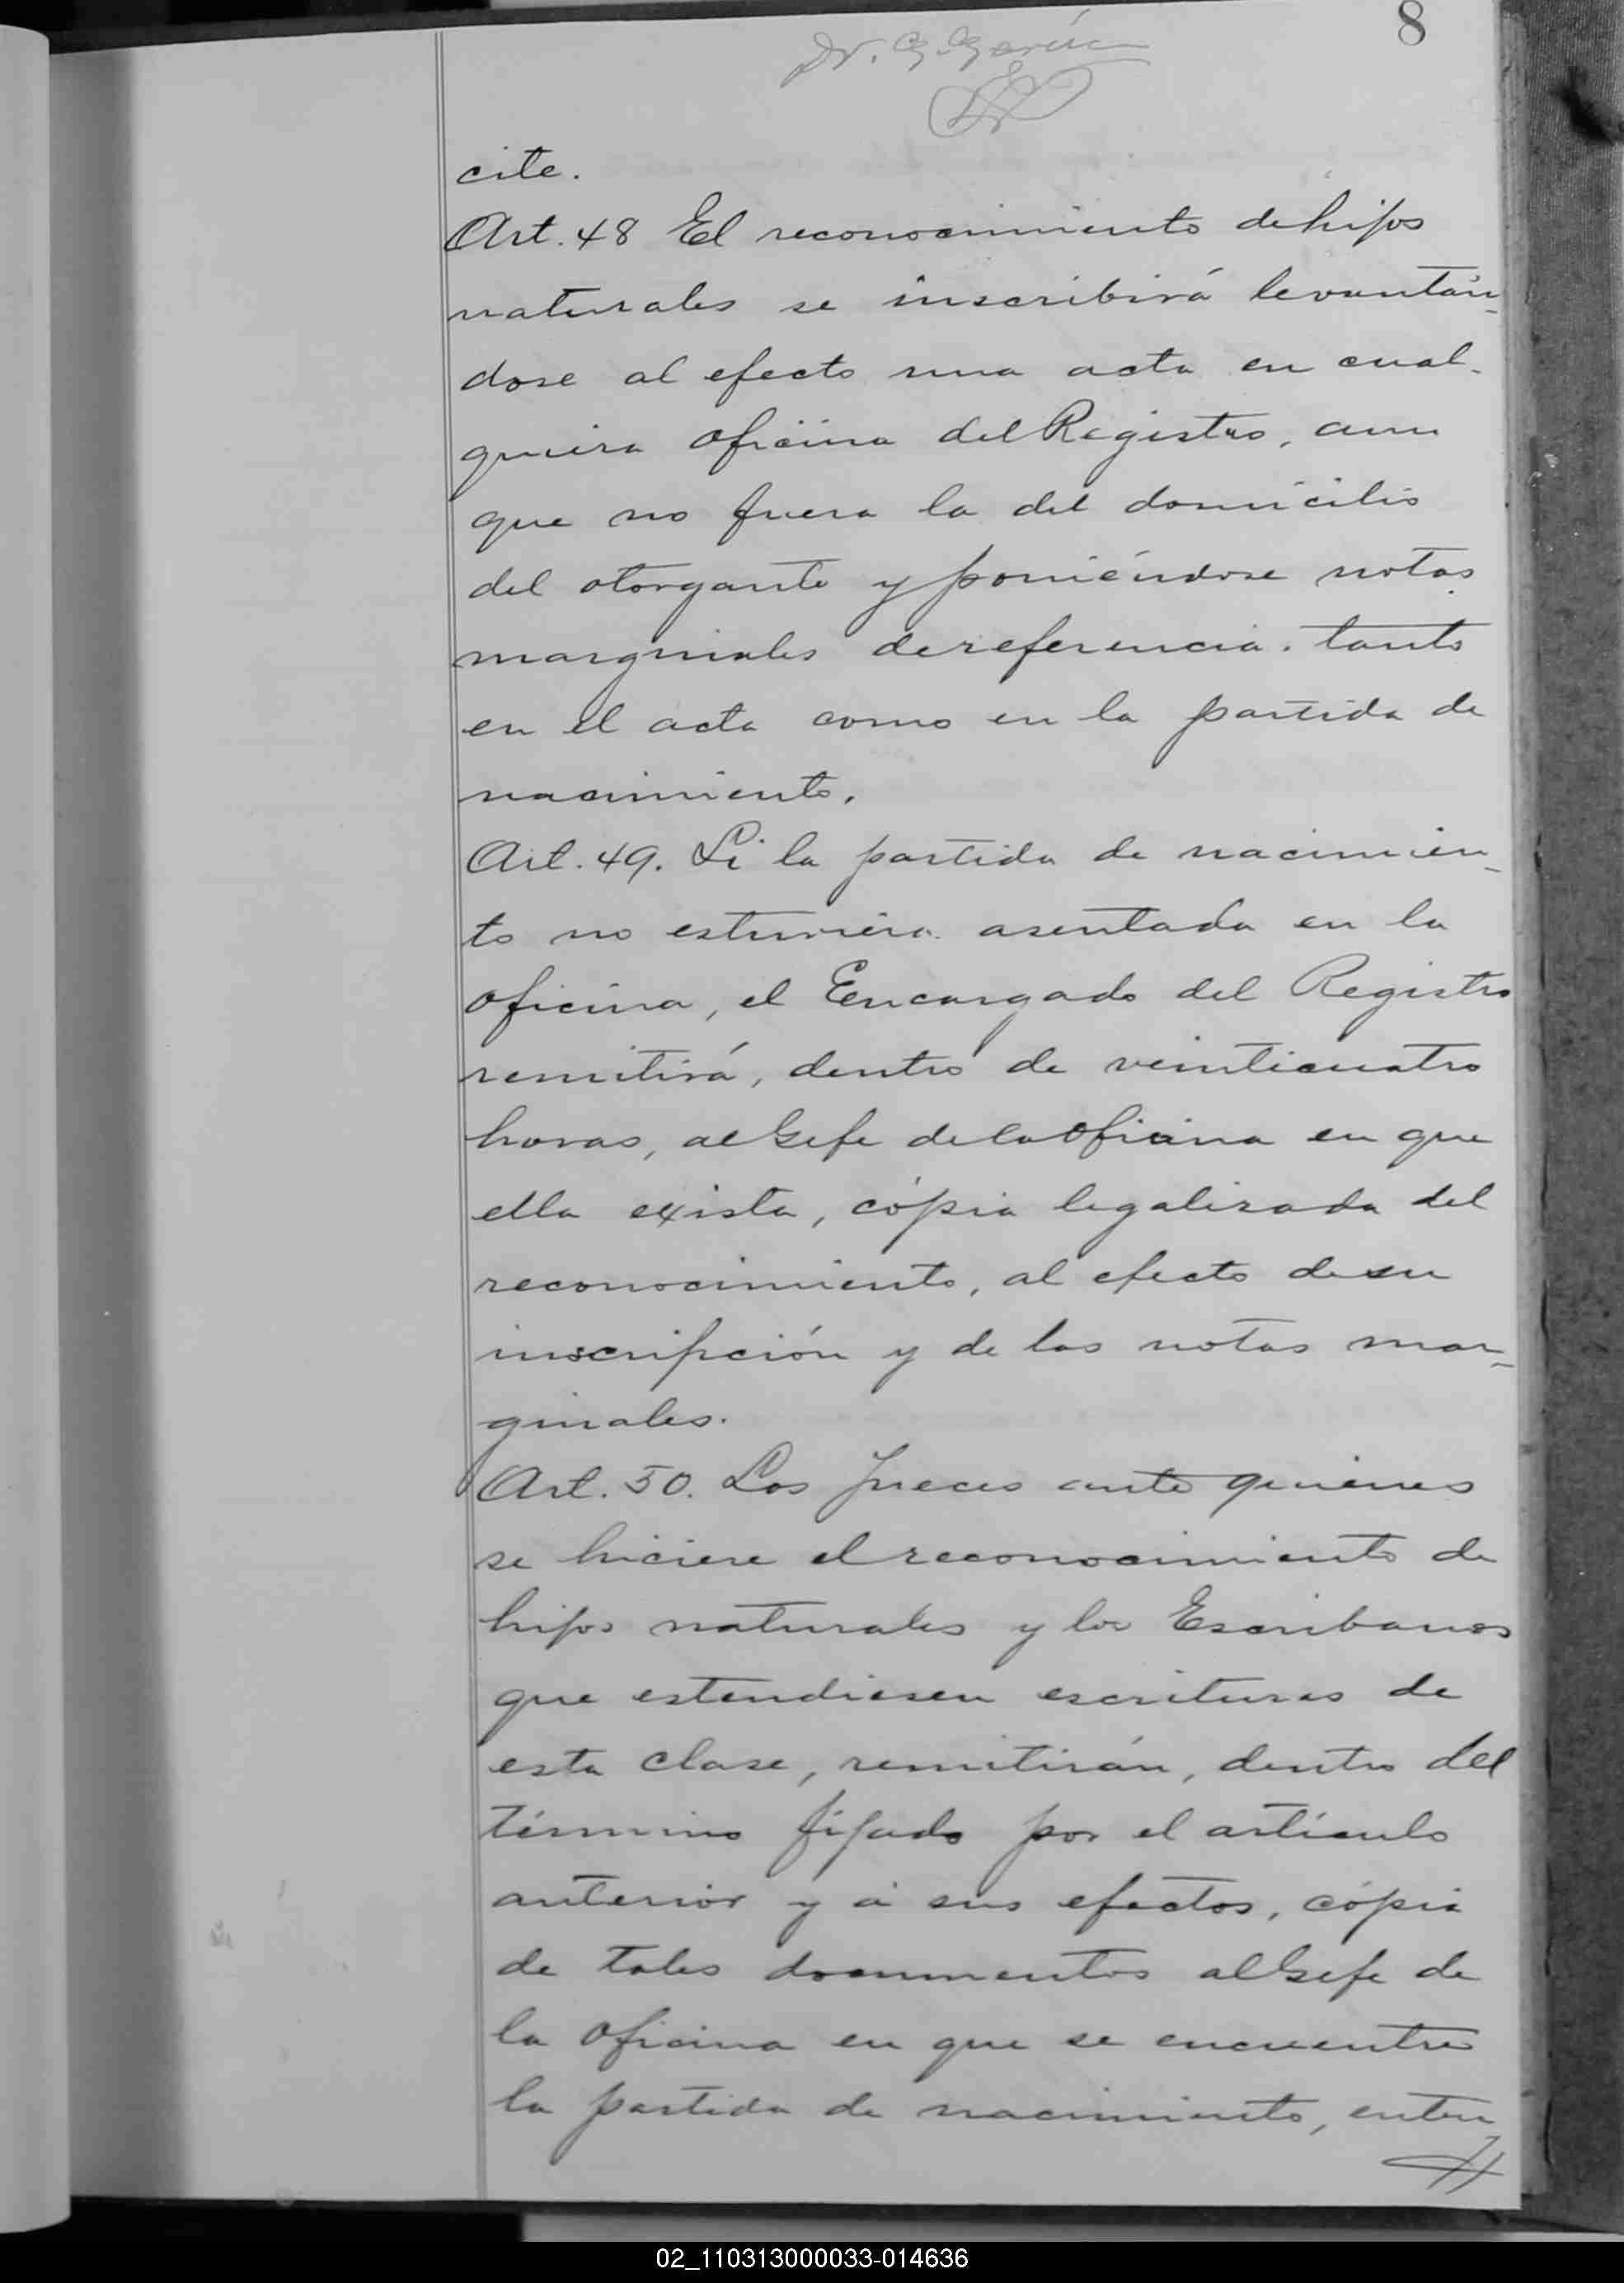 8
Dr. G. García
cite.
Art. 48 El reconocimiento de hijos
naturales se inscribirá levantán-
dose al efecto una acta en cual-
quiera oficina del Registro, aun
que no fuera la del domicilio
del otorgante y poniéndose notas
marginales de referencia. tanto
en el acta como en la partida de
nacimiento.
Art. 49. Si la partida de nacimien-
to no estuviera asentada en la
oficina, el Encargado del Registro
remitirá, dentro de veinticuatro
horas, al Gefe de la Oficina en que
ella exista, cópia legalizada del
reconocimiento, al efecto de su
inscripción y de las notas mar-
ginales.
Art. 50. Los Jueces ante quienes
se hiciere el reconocimiento de
hijos naturales y los Escribanos
que estendiesen escrituras de
esta clase, remitirán, dentro del
término fijado por el artículo
anterior y á sus efectos, cópia
de tales documentos al Gefe de
la Oficina en que se encuentre
la partida de nacimiento, enten
02_110313000033-014636